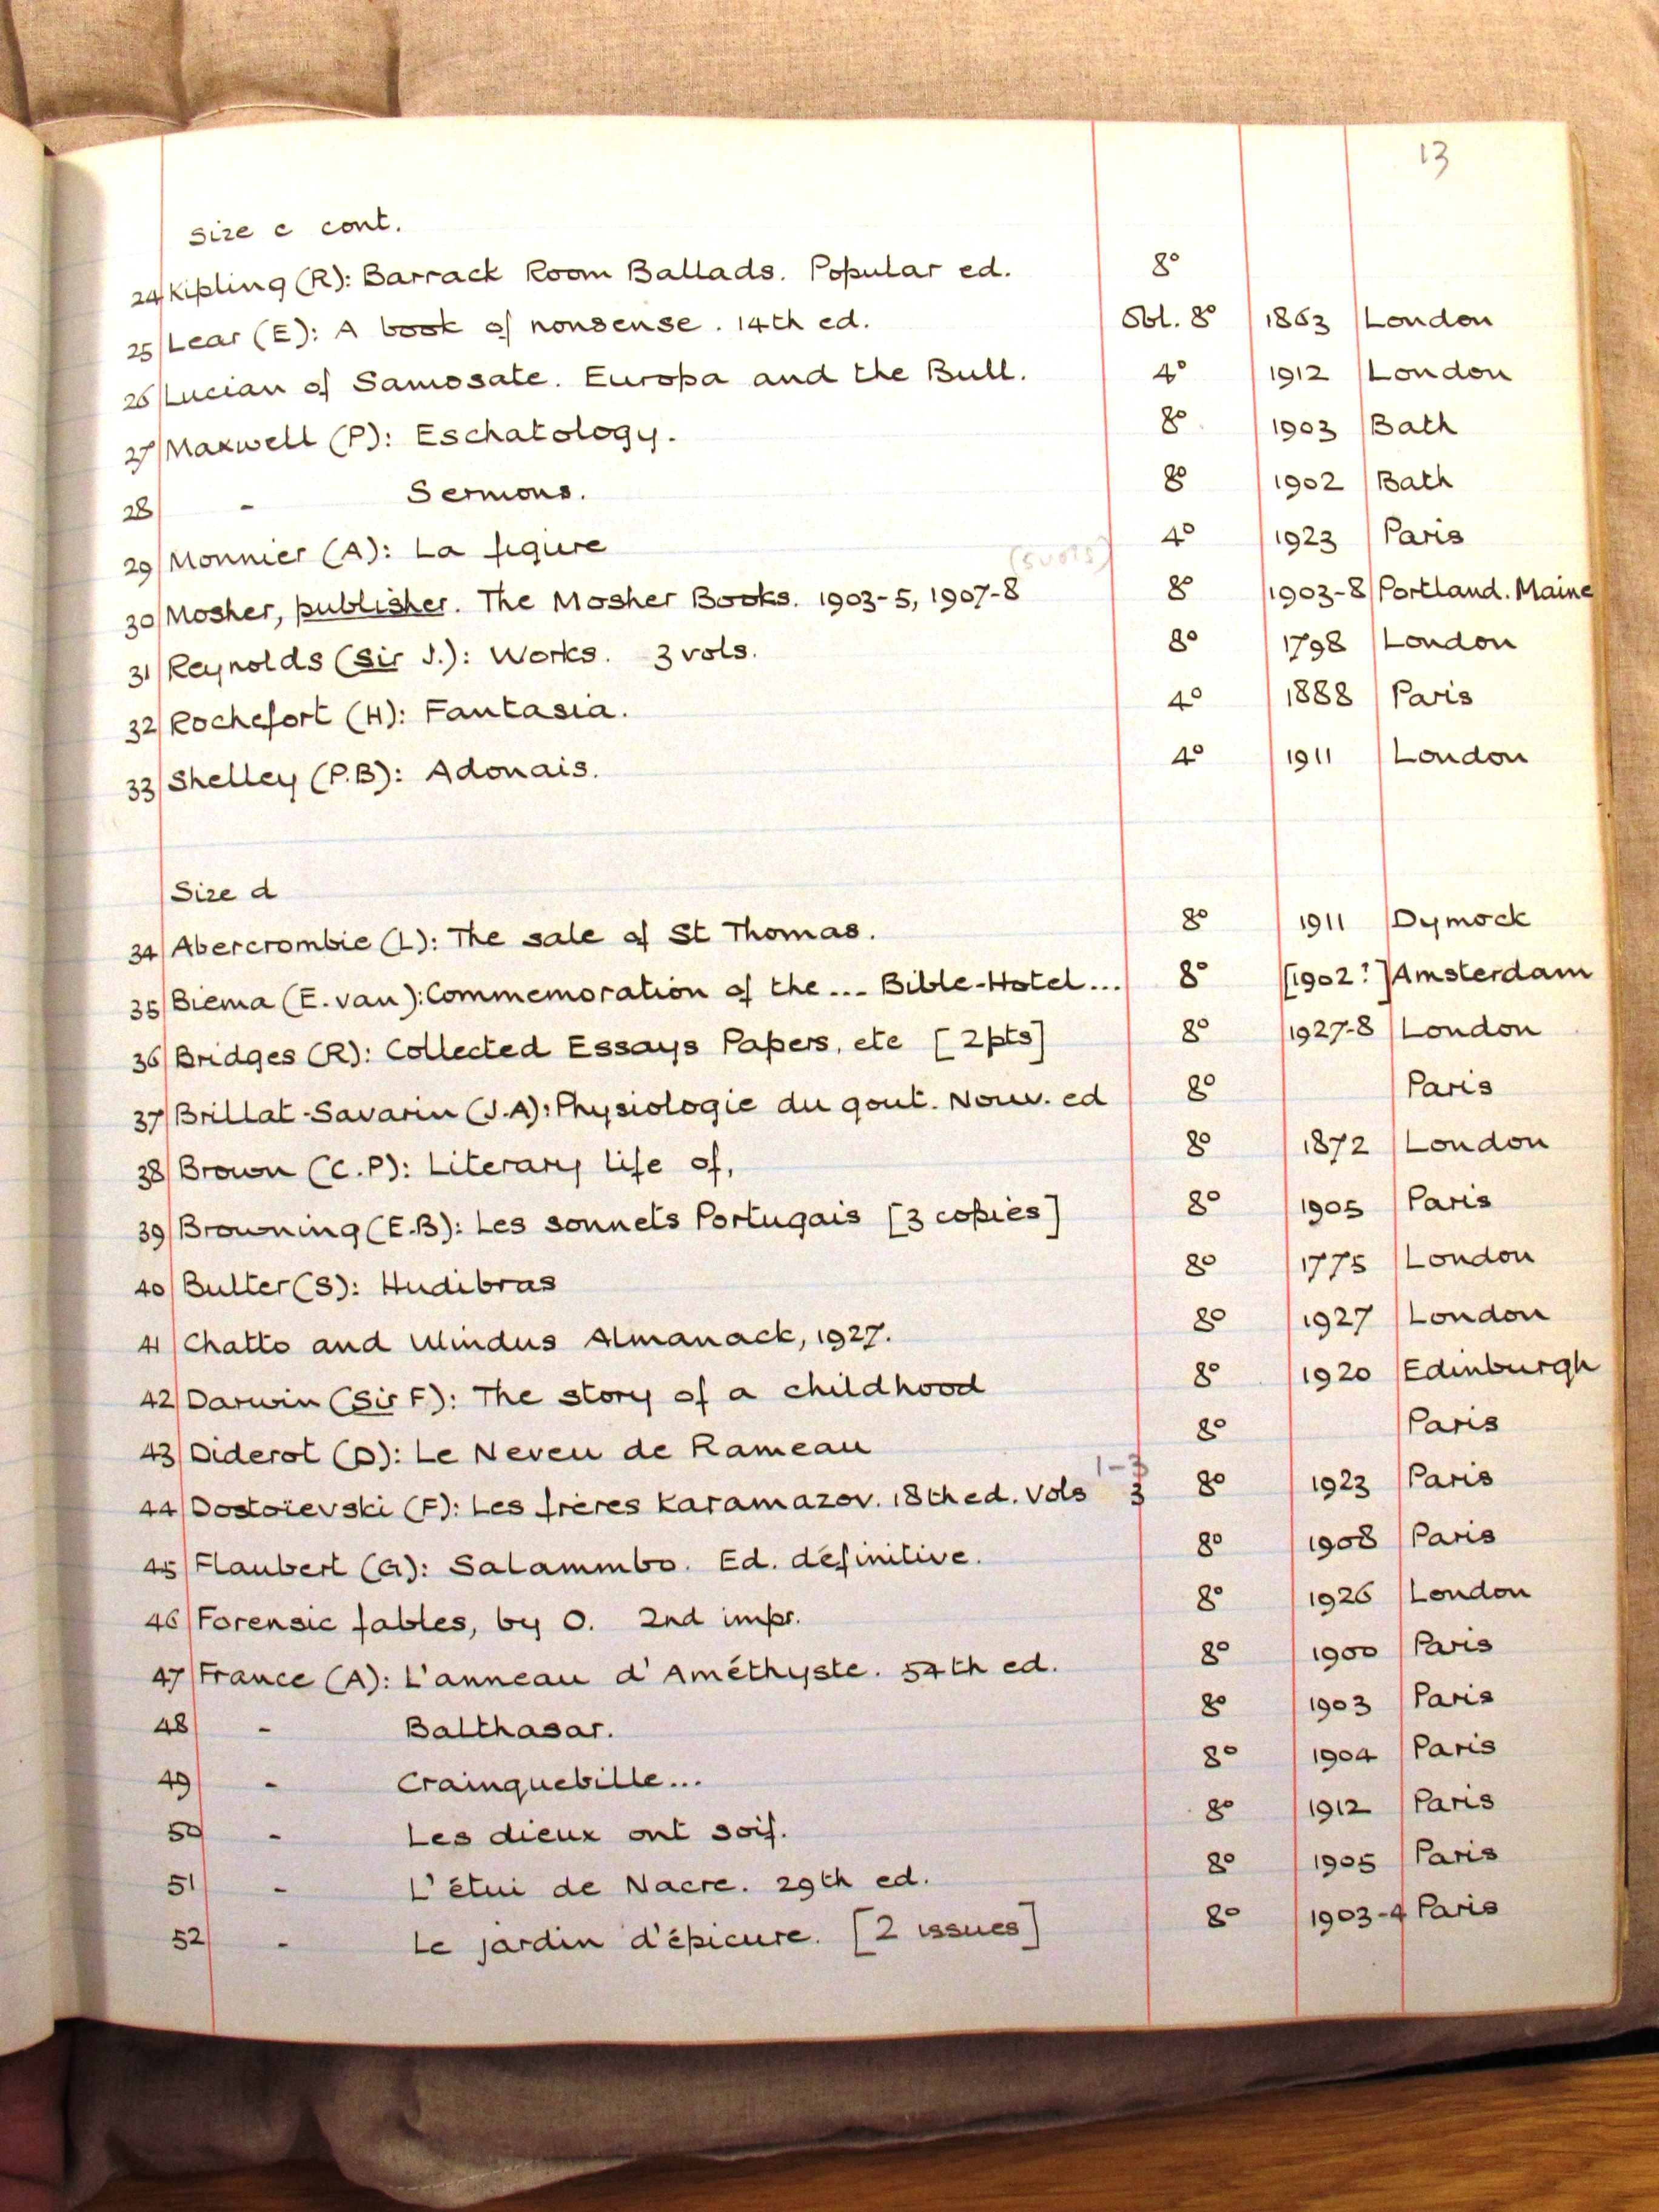 13
Size c cont.
24 Kipling (R): Barrack Room Ballads. Popular ed. 8°
25 Lear (E): A book of nonsense. 14th ed. Obl. 8° 1863 London
26 Lucian of Samosate. Europa and the Bull. 4° 1912 London
27 Maxwell (P): Eschatology. 8° 1903 Bath
28 - Sermons. 8° 1902 Bath
29 Monnier (A): La figure 4° 1923 Paris
(5 vols)
30 Mosher, publisher. The Mosher Books. 1903-5, 1907-8 8° 1903-8 Portland. Maine
31 Reynolds (Sir J.): Works. 3 vols. 8° 1798 London
32 Rochefort (H): Fantasia. 4° 1888 Paris
33 Shelley (P.B): Adonais. 4° 1911 London
Size d
34 Abercrombie (L): The sale of St Thomas. 8° 1911 Dymock
35 Biema (E. van): Commemoration of the ... Bible-Hotel... 8° [1902?] Amsterdam
36 Bridges (R): Collected Essays Papers, etc [2 pts] 8° 1927-8 London
37 Brillat-Savarin (J.A): Physiologie du gout. Nouv. ed 8° Paris
38 Brown (C.P): Literary life of, 8° 1872 London
39 Browning (E.B): Les sonnets Portugais [3 copies] 8° 1905 Paris
40 Butler (S): Hudibras 8° 1775 London
41 Chatto and Windus Almanack, 1927. 8° 1927 London
42 Darwin (Sir F): The story of a childhood 8° 1920 Edinburgh
43 Diderot (D): Le Neveu de Rameau 8° Paris
1-3
44 Dostoïevski (F): Les frères Karamazov. 18th ed. Vols 3 8° 1923 Paris
45 Flaubert (G): Salammbo. Ed. définitive. 8° 1908 Paris
46 Forensic fables, by O. 2nd impr. 8° 1926 London
47 France (A): L'anneau d'Améthyste. 54th ed. 8° 1900 Paris
48 - Balthasar. 8° 1903 Paris
49 - Crainquebille... 8° 1904 Paris
50 - Les dieux ont soif. 8° 1912 Paris
51 - L'étui de Nacre. 29th ed. 8° 1905 Paris
52 - Le jardin d'épicure. [2 issues] 8° 1903-4 Paris